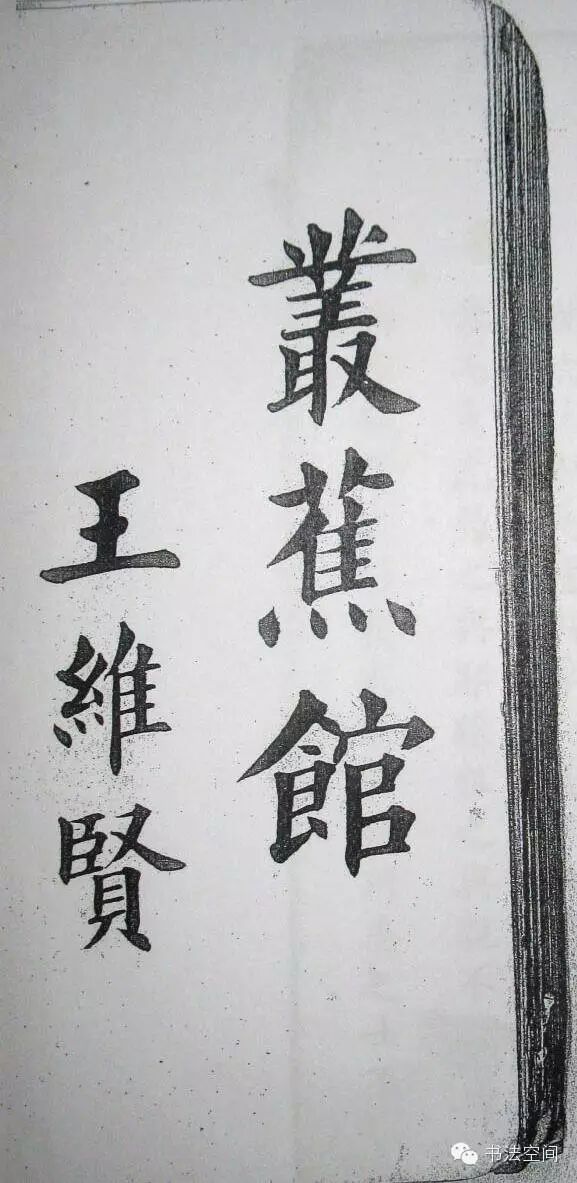 叢蕉館
王維賢
书法空间